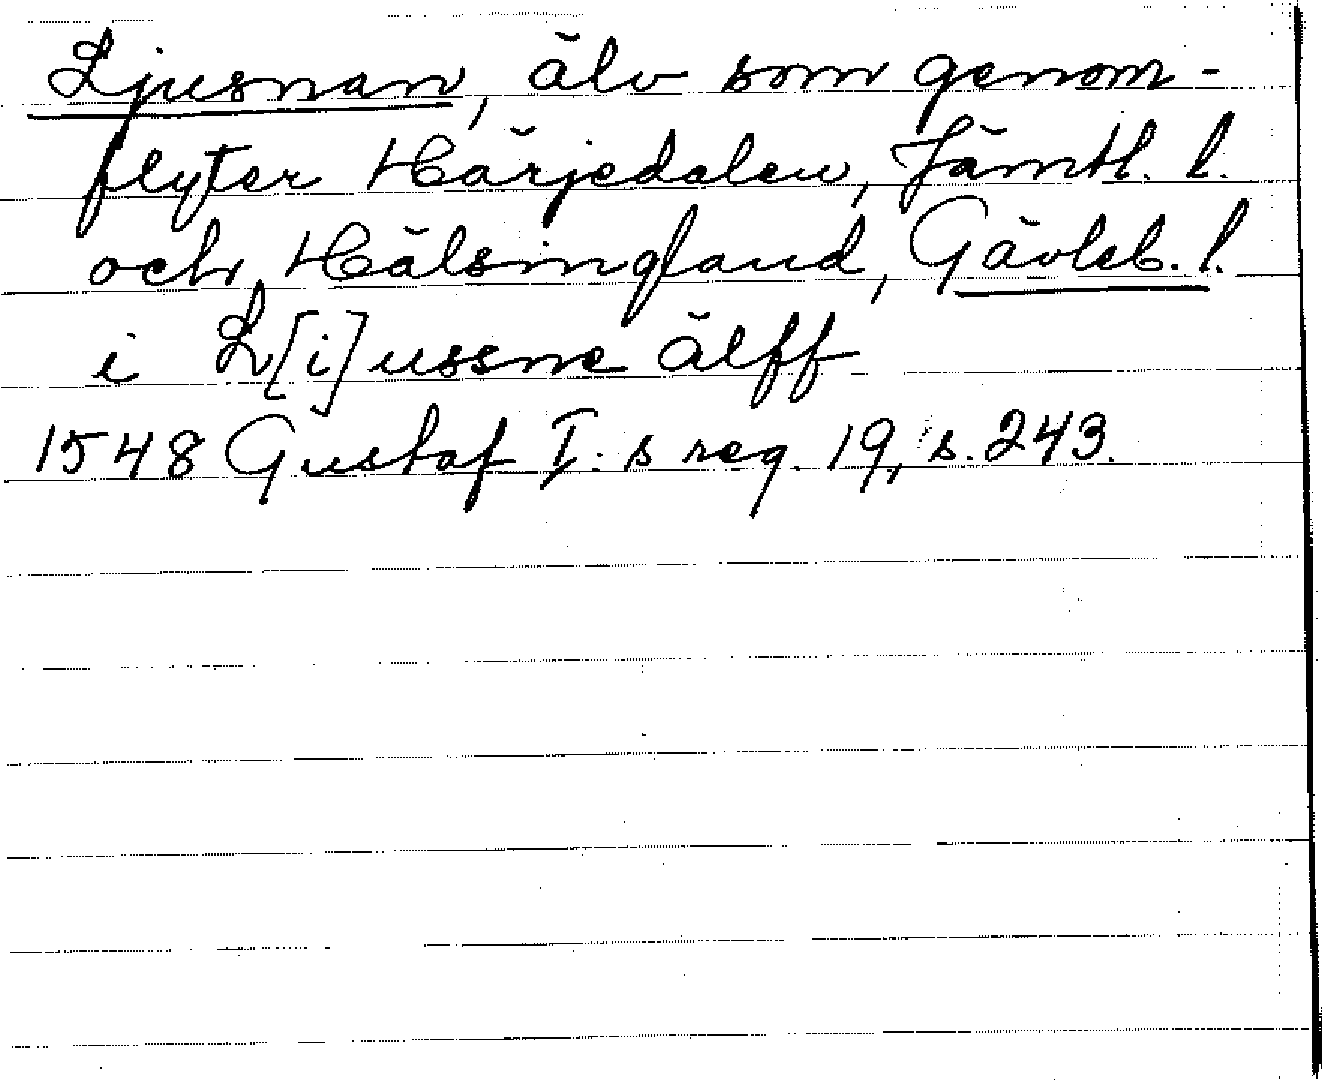 Ljusnan, älv som genom-
flyter Härjedalen, Jämtl. l.
och Hälsingland, Gävleb. l.
i L[i]ussne älff
1548 Gustaf I:s reg. 19, s. 243.